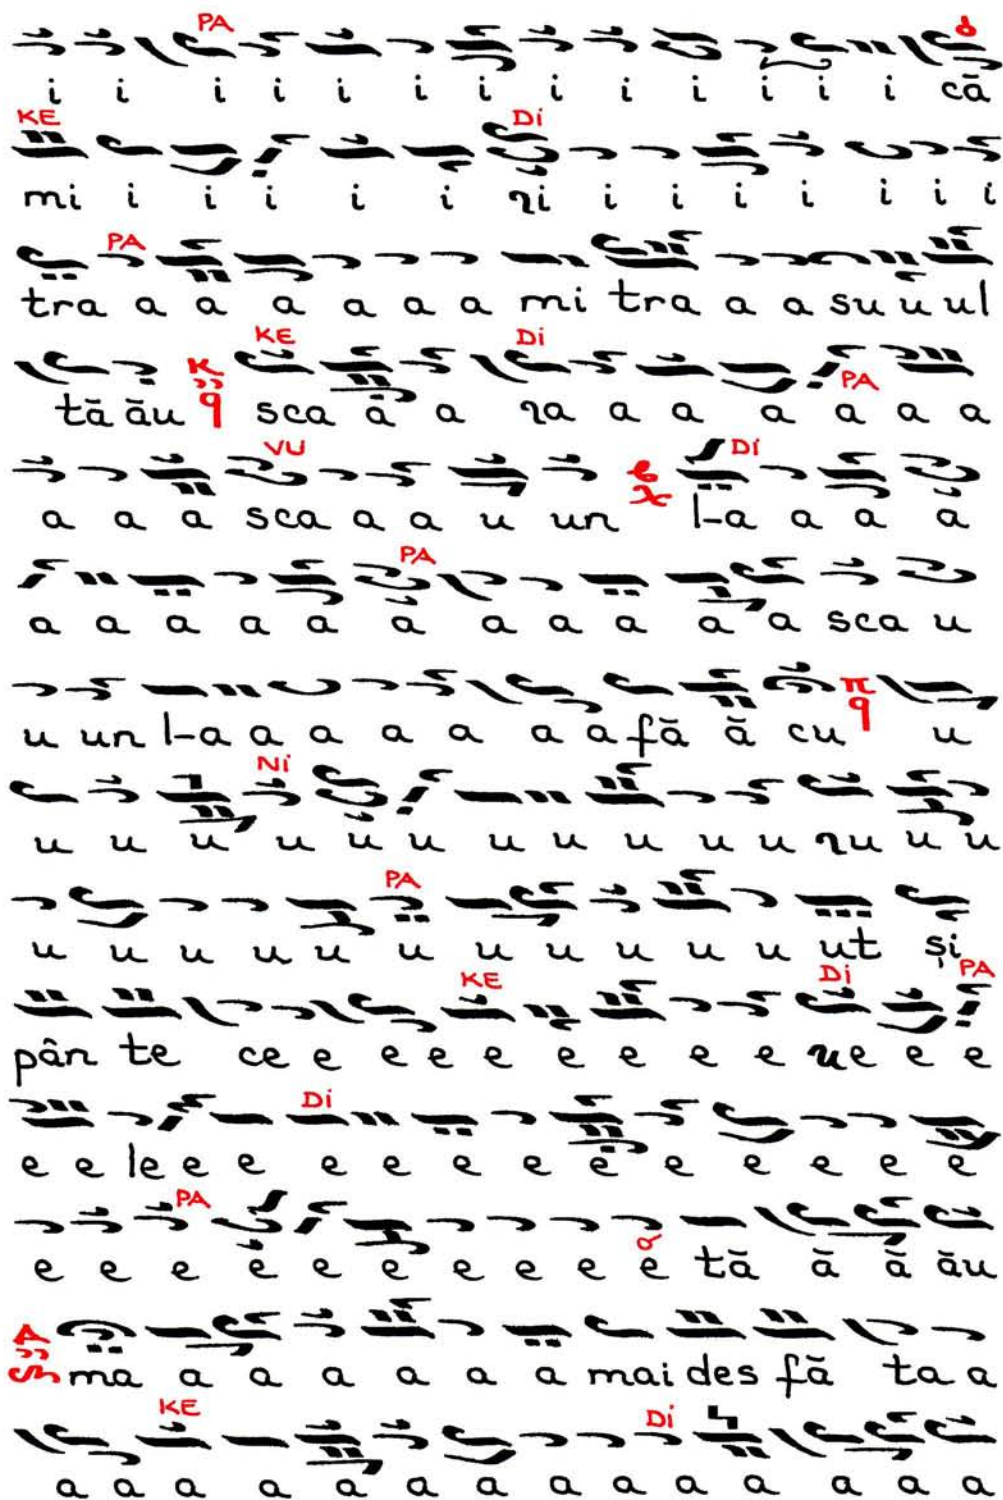 PA
i i i i i i i i i i i i i că
KE Di
mi i i i i i ri i i i i i i i i
PA
tra a a a a a a mi tra a a su u ul
KE Di
tă ău sca a a ra a a a a a a
PA
VU Di
a a a sca a a u un l-a a a a
PA
a a a a a a a a a a a sca u
u un l-a a a a a a a fă ă cu π q u
Ni
u u u u u u u u u u u ru u u
PA
u u u u u u u u u u u ut și
KE Di PA
pân te ce e e e e e e e e re e e
Di
e e le e e e e e e e e e e e e
PA
e e e e e e e e e e tă ă ă ău
ma a a a a a a a mai des fă ta a
KE Di
a a a a a a a a a a a a a